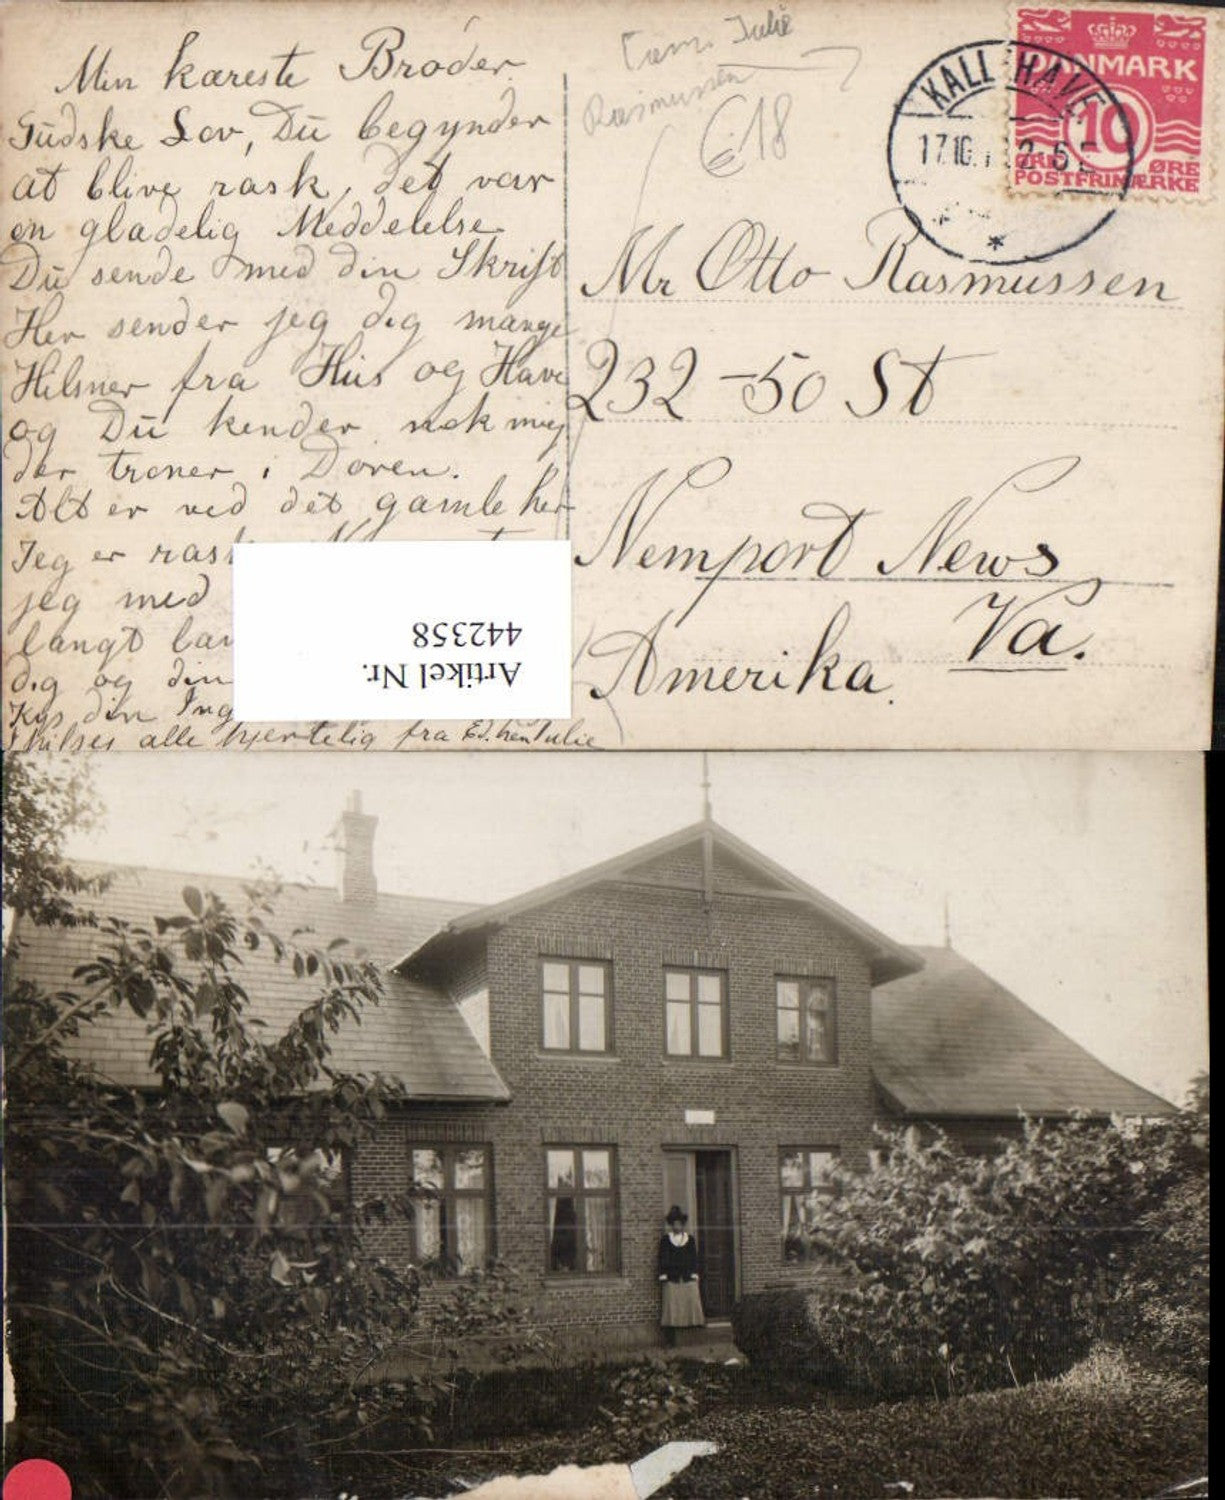 Min kæreste Broder.
Gudske Lov, Du begynder
at blive rask, det var
en gladelig Meddelelse
Du sende med din Skrift
Her sender jeg dig mange
Hilsner fra Hus og Have
og Du kender nok mig
der troner i Doren.
Alt er ved det gamle her
Jeg er rask
jeg med
langt
dig og din
Kys din Ing
hilses alle hjertelig fra Ed. Julie
Fam. Julie
Rasmussen
€ 18
KALL HAVE
17.10. 2-5 E
DANMARK
10
ØRE ØRE
POSTFRIMÆRKE
Mr Otto Rasmussen
232-50 St
Newport News
Va.
Amerika.
Artikel Nr.
442358